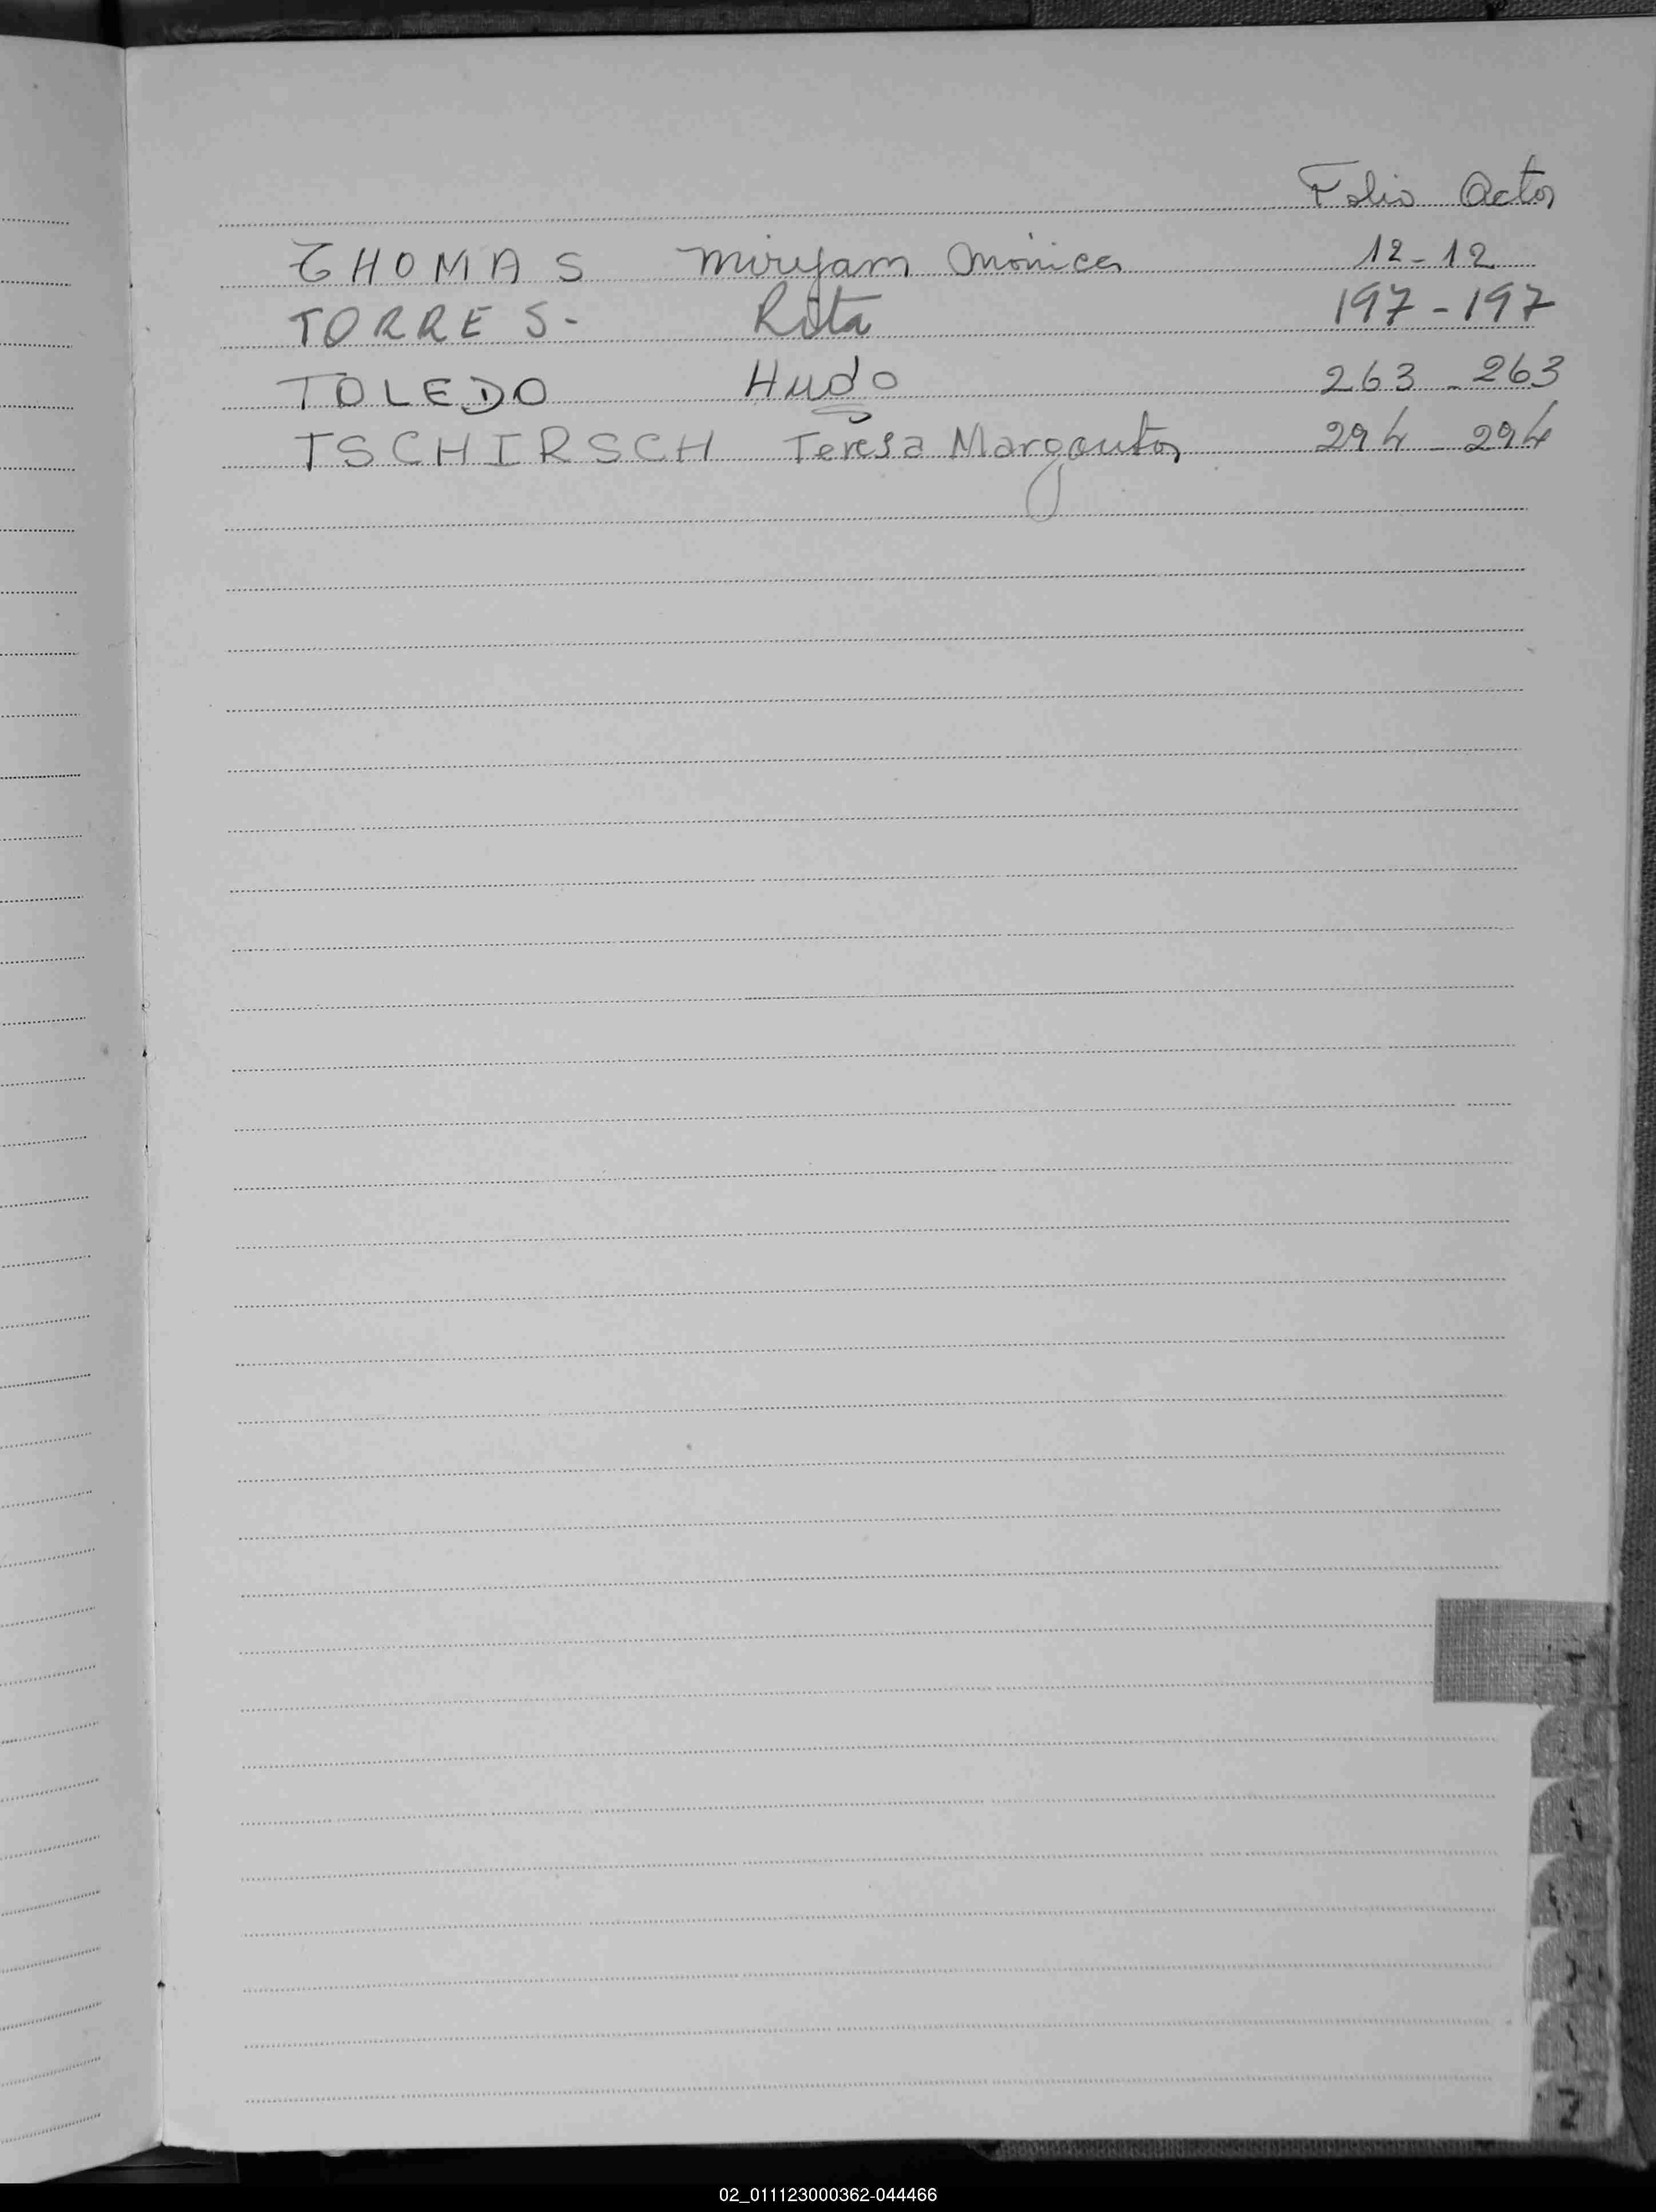 Folio Acta
THOMAS Miryam Mónica 12-12
TORRES- Rita 197-197
TOLEDO Hudo 263-263
TSCHIRSCH Teresa Margarita 294-294
T
Z
02_011123000362-044466